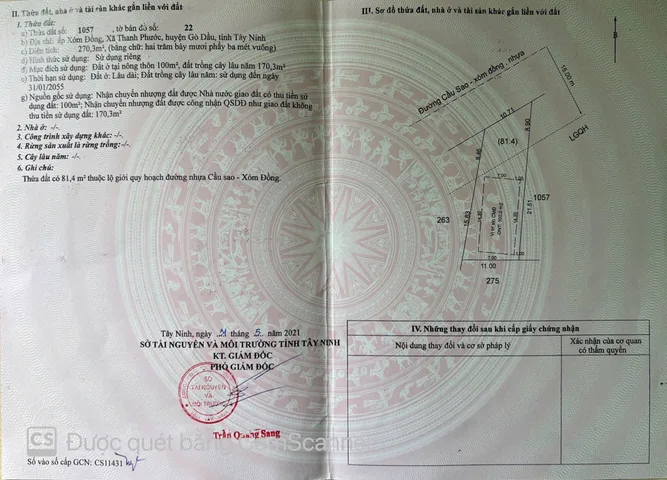 II. Thửa đất, nhà ở và tài sản khác gắn liền với đất
1. Thửa đất:
a) Thửa đất số: 1057 , tờ bản đồ số: 22
b) Địa chỉ: ấp Xóm Đồng, Xã Thanh Phước, huyện Gò Dầu, tỉnh Tây Ninh
c) Diện tích: 270,3m², (bằng chữ: hai trăm bảy mươi phẩy ba mét vuông)
d) Hình thức sử dụng: Sử dụng riêng
đ) Mục đích sử dụng: Đất ở tại nông thôn 100m², đất trồng cây lâu năm 170,3m²
e) Thời hạn sử dụng: Đất ở: Lâu dài; Đất trồng cây lâu năm: sử dụng đến ngày
31/01/2055
g) Nguồn gốc sử dụng: Nhận chuyển nhượng đất được Nhà nước giao đất có thu tiền sử
dụng đất: 100m²; Nhận chuyển nhượng đất được công nhận QSDĐ như giao đất không
thu tiền sử dụng đất: 170,3m²
2. Nhà ở: -/-.
3. Công trình xây dựng khác: -/-.
4. Rừng sản xuất là rừng trồng:-/-.
5. Cây lâu năm: -/-.
6. Ghi chú:
Thửa đất có 81,4 m² thuộc lộ giới quy hoạch đường nhựa Cầu sao - Xóm Đồng.
Tây Ninh, ngày 21 tháng 5 năm 2021
SỞ TÀI NGUYÊN VÀ MÔI TRƯỜNG TỈNH TÂY NINH
KT. GIÁM ĐỐC
PHÓ GIÁM ĐỐC
SỞ
TÀI NGUYÊN
VÀ
MÔI TRƯỜNG
Trần Quang Sang
CS Được quét bằng CamScanner
Số vào sổ cấp GCN: CS11431
III. Sơ đồ thửa đất, nhà ở và tài sản khác gắn liền với đất
B
Đường Cầu Sao - xóm đồng , nhựa
15.00 m
LGQH
10.71
(81.4)
8.90
9.46
7.00
1057
263
15.83
14.20
ONT 100.0 m2
14.20
21.51
7.00
11.00
275
IV. Những thay đổi sau khi cấp giấy chứng nhận
Nội dung thay đổi và cơ sở pháp lý
Xác nhận của cơ quan
có thẩm quyền